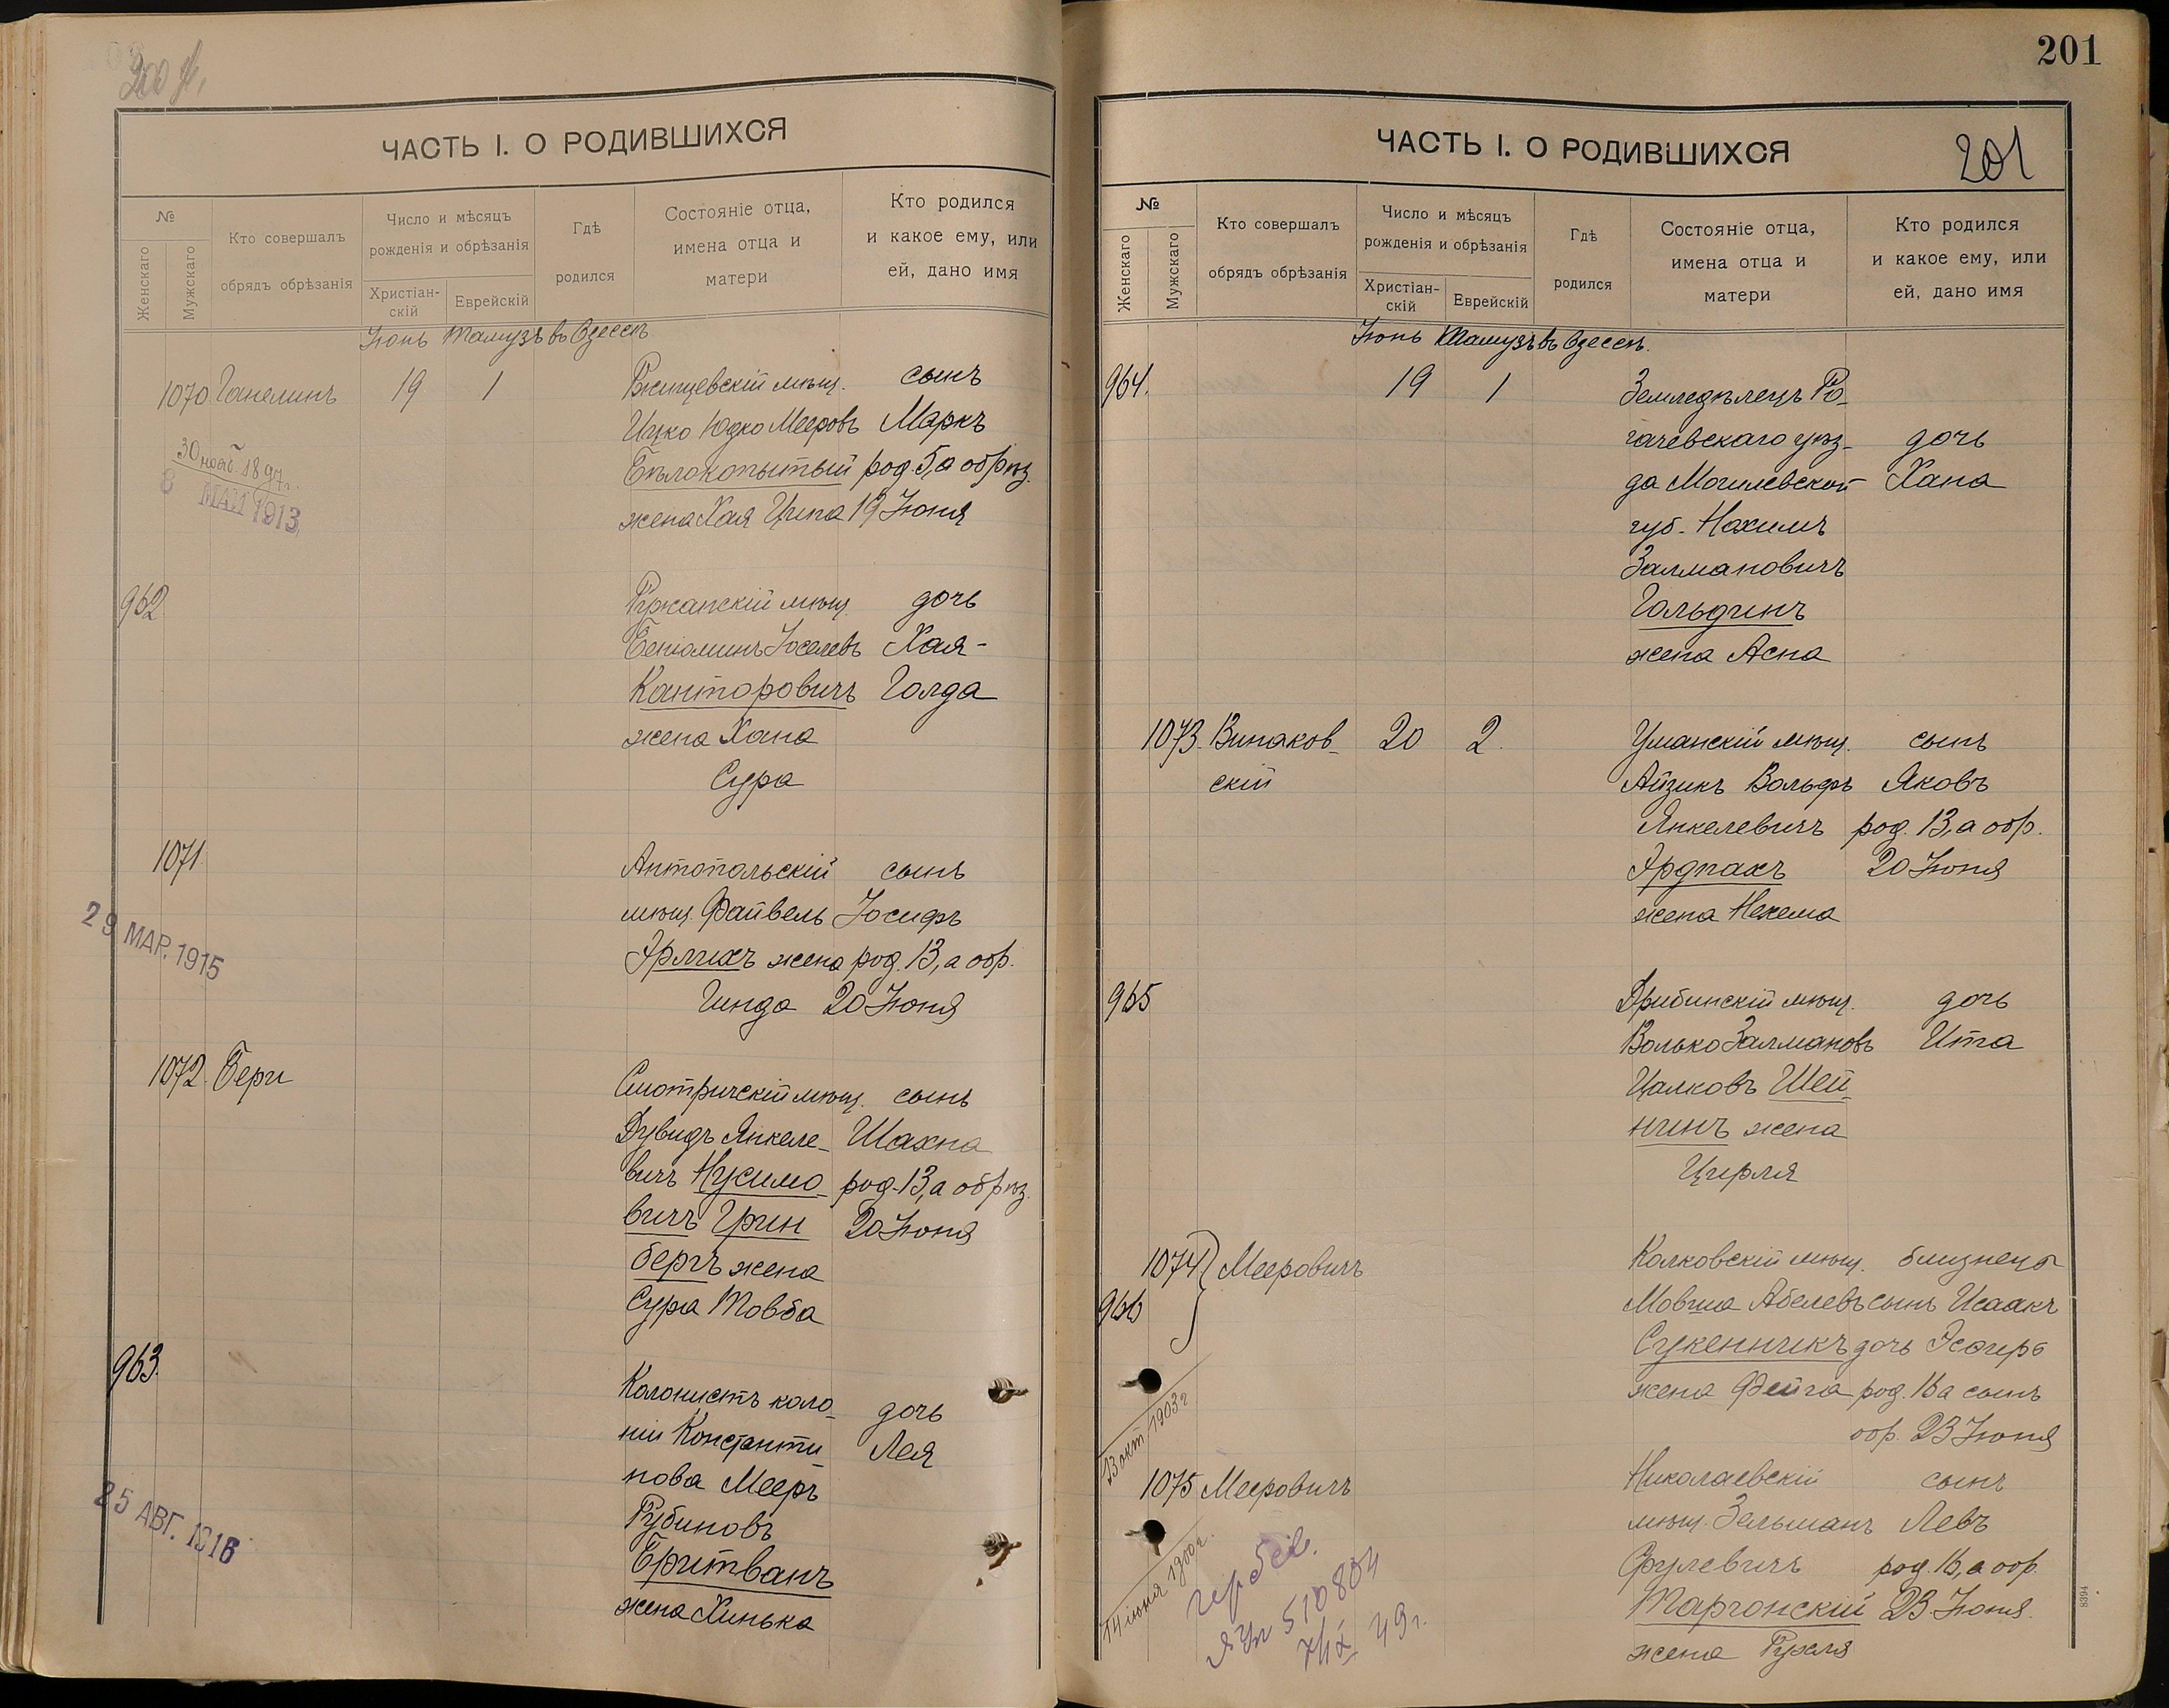 200 
ЧАСТЬ I. О РОДИВШИХСЯ
№
Женскаго
Мужскаго
Кто совершалъ
обрядъ обрѣзанія
Число и мѣсяцъ
рожденія и обрѣзанія
Христіан-
скій
Еврейскій
Гдѣ
родился
Состояніе отца,
имена отца и
матери
Кто родился
и какое ему, или
ей, дано имя
Іюнь Тамузъ въ Одессѣ.
1070 Ганелинъ 19 1 Ржищевскій мѣщ. сынъ
Ицко Юдко Мееровъ Маркъ
Бѣлокопытый род. 5, а обрѣз.
жена Хая Ципа 19 Іюня
30 нояб. 1897 г.
8 МАЯ 1913
962 Ружанскій мѣщ. дочь
Беніоминъ Іоселевъ Хая-
Канторовичъ Голда
жена Хана
Сура
1071. Антопольскій сынъ
мѣщ. Файвель Іосифъ
Эрлихъ жена род. 13, а обр.
Гинда 20 Іюня
29 МАР. 1915
1072. Бери Смотричскій мѣщ. сынъ
Дувидъ Янкеле- Шахна
вичъ Нусимо- род. 13, а обрѣз.
вичъ Грин 20 Іюня
бергъ жена
Сура Товба
963. Колонистъ коло- дочь
ніи Константи- Лея
нова Мееръ
Рубиновъ
Бритванъ
жена Хинька
25 АВГ. 1916
201
ЧАСТЬ I. О РОДИВШИХСЯ
201
№
Женскаго
Мужскаго
Кто совершалъ
обрядъ обрѣзанія
Число и мѣсяцъ
рожденія и обрѣзанія
Христіан-
скій
Еврейскій
Гдѣ
родился
Состояніе отца,
имена отца и
матери
Кто родился
и какое ему, или
ей, дано имя
Іюнь Тамузъ въ Одессѣ.
964. 19 1 Земледѣлецъ Ро-
гачевскаго уѣз- дочь
да Могилевской Хана
губ. Нохимъ
Залмановичъ
Гольдинъ
жена Асна
1073. Винаков- 20 2. Уманскій мѣщ. сынъ
скій Айзикъ Вольфъ Яковъ
Янкелевичъ род. 13, а обр.
Эрдпахъ 20 Іюня
жена Нехема
965 Дрибинскій мѣщ. дочь
Волько Залмановъ Ита
Цалковъ Шей-
нинъ жена
Цирля
1074 Мееровичъ Колковскій мѣщ. близнецы
966 Мовша Абелевъ сынъ Исаакъ
Сукенникъ дочь Эсѳирь
жена Фейга род. 16 а сынъ
обр. 23 Іюня
13 окт 1903 г
1075 Мееровичъ Николаевскій сынъ
мѣщ. Зельманъ Левъ
Срулевичъ род. 16, а обр.
Таргонскій 23 Іюня.
жена Рухля
14 іюня 1900 г.
510804
7/IX 49 г.
8394